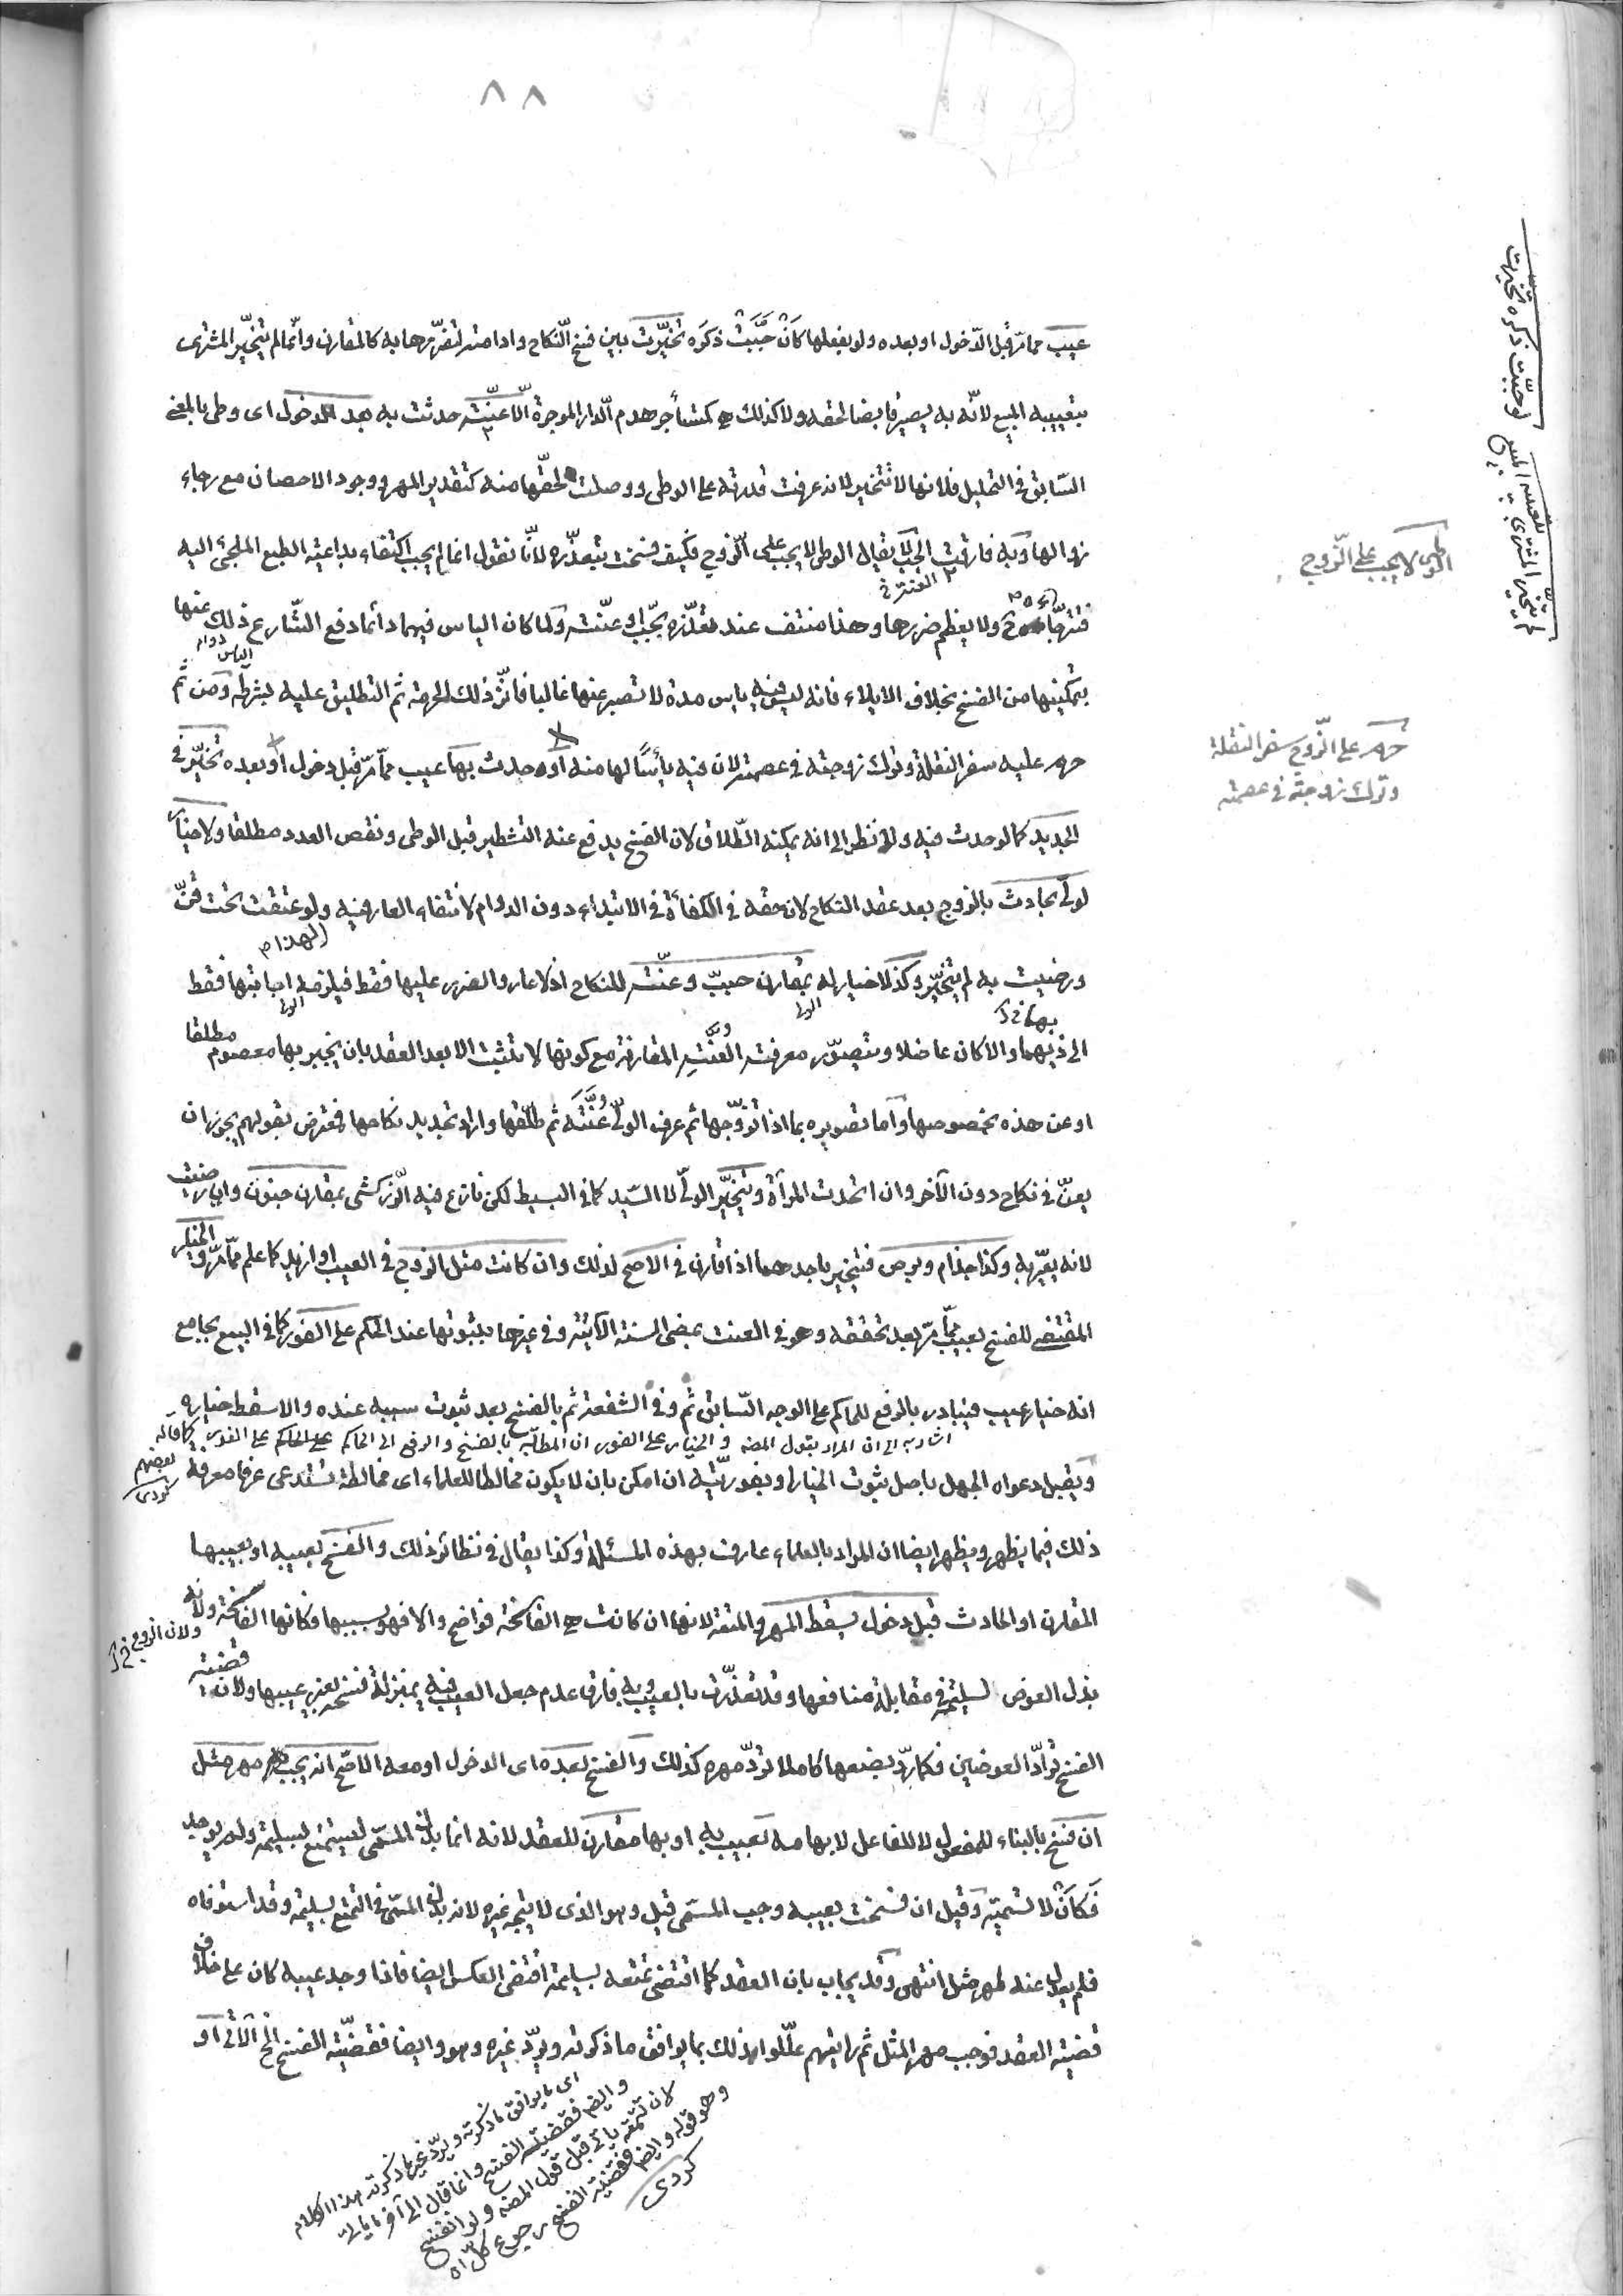 ٨٨
عيب مما مرّ قبل الدّخول او بعده ولو بفعلها كأن جبّت ذكره تخيّرت بين فسخ النّكاح وادامته لتضرّرها به كالمقارن وانّما لم يتخيّر المشترى
بتعييبه المبيع لانّه به يصير قابضا لحقه ولا كذلك هى كمستأجر هدم الدّار الموجرة الّا عنّة حدثت به بعد الدخول اى وطى بالمعنى
السّابق فى التحليل فلانها لا تتخير لانه عرفت قدرته على الوطى ووصلت لحقّها منه كتقدير المهر ووجود الاحصان مع رجاء
زوالها وبه فارقت الجبّ لا يقال الوطى لا يجب على الزّوج فكيف فسخت بتعذّره لانّا نقول انما لم يجب اكتفاء بداعية الطبع الملجئ اليه
ولا يعظم ضررها وهذا منتف عند تعذّره بجبّ او عنّة ولما كان الياس فيهما دائما دفع الشّارع ذلك عنها
بتمكينها من الفسخ بخلاف الايلاء فانه ليس فيه ياس مدة لا تصبر عنها غالبا فاثّر ذلك الحرمة ثم التطليق عليه بشرطه ومن ثمّ
حرم عليه سفر النقلة وترك زوجته فى عصمته لان فيه يأسًا لها منه او حدث بها عيب ممّا مرّ قبل دخول او بعده تخيّر فى
الجديد كما لو حدث فيه ولا نظر الى انه يمكنه الطّلاق لان الفسخ يدفع عنه التشطير قبل الوطى ونقص العدد مطلقا ولا خيار
لولىّ بحادث بالزوج بعد عقد النكاح لان حقه فى الكفأة فى الابتداء دون الدوام لانتفاء العار فيه ولو عتقت تحت قنّ
ورضيت به لم يتخيّر وكذا لا خيار له بمقارن جبّ وعنّة للنكاح اذ لا عار والضرر عليها فقط فيلزمه اجابتها فقط
الى ذيهما والا كان عاضلا ويتصوّر معرفة العنّة المقارنة مع كونها لا تثبت الا بعد العقد بان يخبر بها معصوم مطلقا
او عن هذه بخصوصها وأما تصويره بما اذا تزوّجها ثم عرف الولىّ عنّته ثم طلّقها واراد تجديد نكاحها فمعترض بقولهم يجوز ان
يعنّ فى نكاح دون الآخر وان اتحدت المرأة ويتخيّر الولىّ لا السّيد كما فى البسيط لكن نازع فيه الزّركشى بمقارن جنون وان رضيت
لانه يعيّر به وكذا جذام وبرص فيتخير باحدهما اذا قارن فى الاصح لذلك وان كانت مثل الزوج فى العيب او ازيد كما علم ممّا مرّ والخيار
المقتضى للفسخ بعيب ممّا مرّ بعد تحققه وهو فى العنة بمضى السنة الآتية وفى غيرها بثبوتها عند الحاكم على الفور كما فى البيع بجامع
انه خيار عيب فيبادر بالرفع للحاكم على الوجه السّابق ثم وفى الشفعة ثم بالفسخ بعد ثبوت سببه عنده والا سقط خياره
اشار به الى ان المراد بقول المصه و الخيار على الفور ان المطالبة بالفسخ والرفع الى الحاكم على الفور كما قاله بعضهم كردى
ويقبل دعواه الجهل باصل ثبوت الخيار او بفوريّته ان امكن بان لا يكون مخالطا للعلماء اى مخالطة تستدعى عرفا معرفة
ذلك فيما يظهر ويظهر ايضا ان المراد بالعلماء عارف بهذه المسئلة وكذا يقال فى نظائر ذلك والفسخ بعيبه او بعيبها
المقارن او الحادث قبل دخول يسقط المهر والمتعة لانها ان كانت هى الفاسخة فواضح والا فهو بسببها فكانها الفاسخة ولانه
ولان الزوج خ
بذل العوض لسليمة فى مقابلة منافعها وقد تعذّرت بالعيب وبه فارق عدم جعل العيب فيه بمنزلة فسخه لغير عيبها ولان قضية
الفسخ ترادّ العوضين فكما ردّ بضعها كاملا تردّ مهره كذلك والفسخ بعده اى الدخول او معه الاصّح انه يجب مهر مثل
ان فسخ بالبناء للمفعول لا للفاعل لابهامه بعيب به او بها مقارن للعقد لانه انما بذل المسمّى ليستمتع بسليمة ولم يوجد
فكأن لا تسمية وقيل ان فسخت بعيبه وجب المسمّى قيل وهو الذى لا يتجه غيره لانه بذل المسمّى فى التمتع بسليمة وقد استوفاه
فلم يعدل عنه لمهر مثل انتهى وقد يجاب بان العقد كما اقتضى تمتعه بسليمة اقتضى العكس ايضا فاذا وجد عيبه كان على خلاف
قضية العقد فوجب مهر المثل ثم رايتهم علّلوا بذلك بما يوافق ما ذكرته ويردّ غيره وهو وايضا فقضيّة الفسخ الخ الآتى او
اى بما يوافق ما ذكرته ويردّ غير ما ذكرته هذا الكلام
وايضا فقضية الفسخ وانما قال الى آخر ما ياتى
لان تتمته ياتى قبل قول المصه ولو انفسخ
وهو قوله وايضا فقضية الفسخ رجوع كلّ اه
كردى
لو جبّت ذكره تخيّرت
لم يتخيّر المشترى بتعييبه المبيع
الوطى لا يجب على الزّوج
حرم على الزّوج سفر النقلة
وترك زوجته فى عصمته